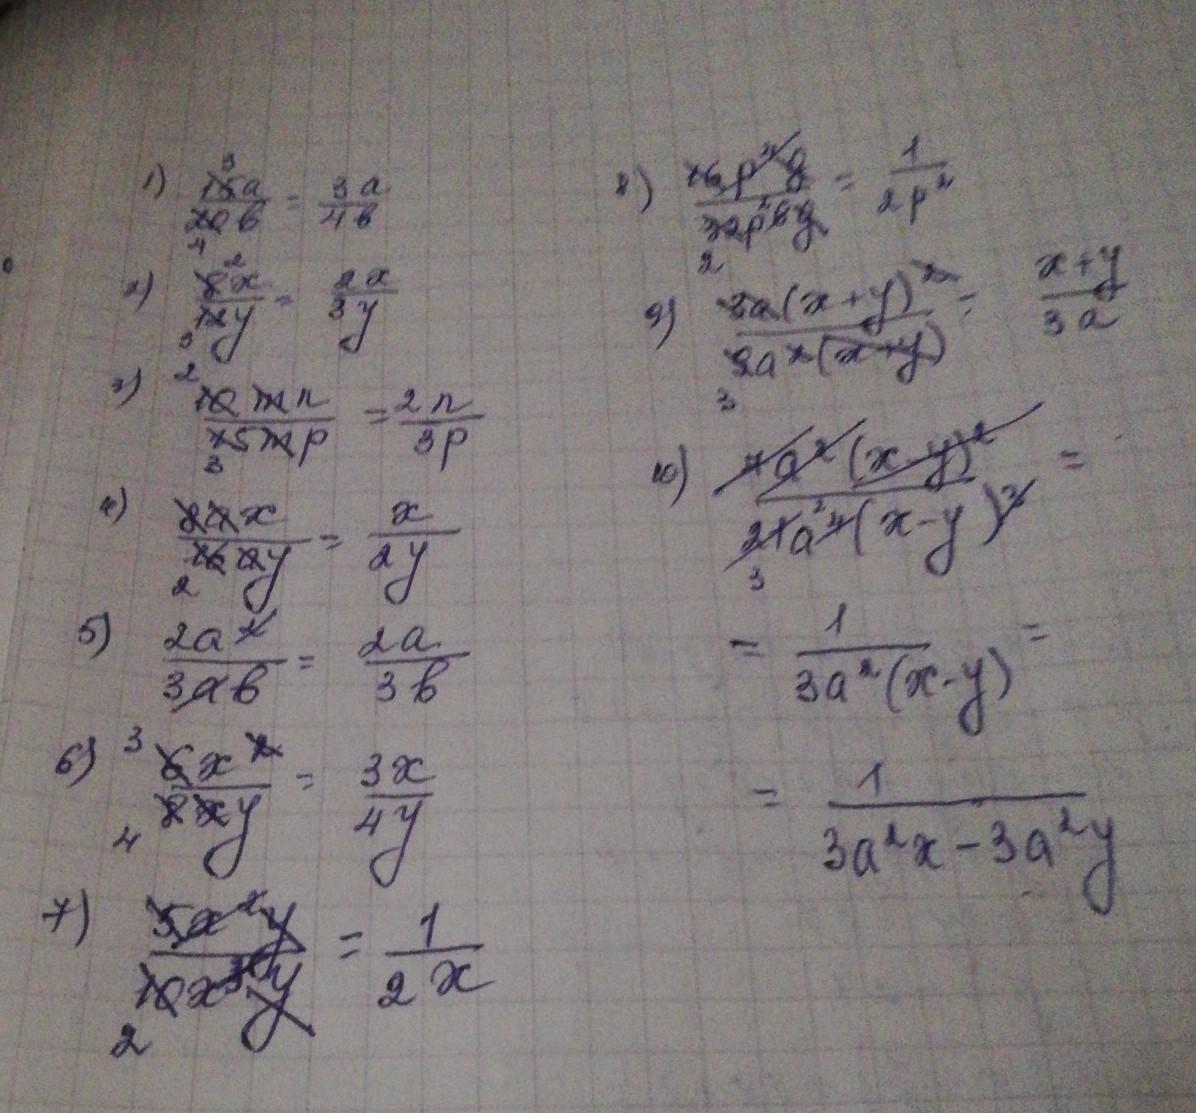 1) 15a/20b = 3a/4b
2) 8x/12y = 2x/3y
3) 10mn/15mp = 2n/3p
4) 8x/16y = x/2y
5) 2a²/3ab = 2a/3b
6) 6x²/8xy = 3x/4y
7) 5x²y/10x³y = 1/2x
8) 16p⁴q/32p⁶q = 1/2p²
9) a(x+y)²/a²(x+y) = x+y/3a
10) 7a²(x-y)²/21a⁴(x-y)³ =
= 1/3a²(x-y) =
= 1/3a²x-3a²y